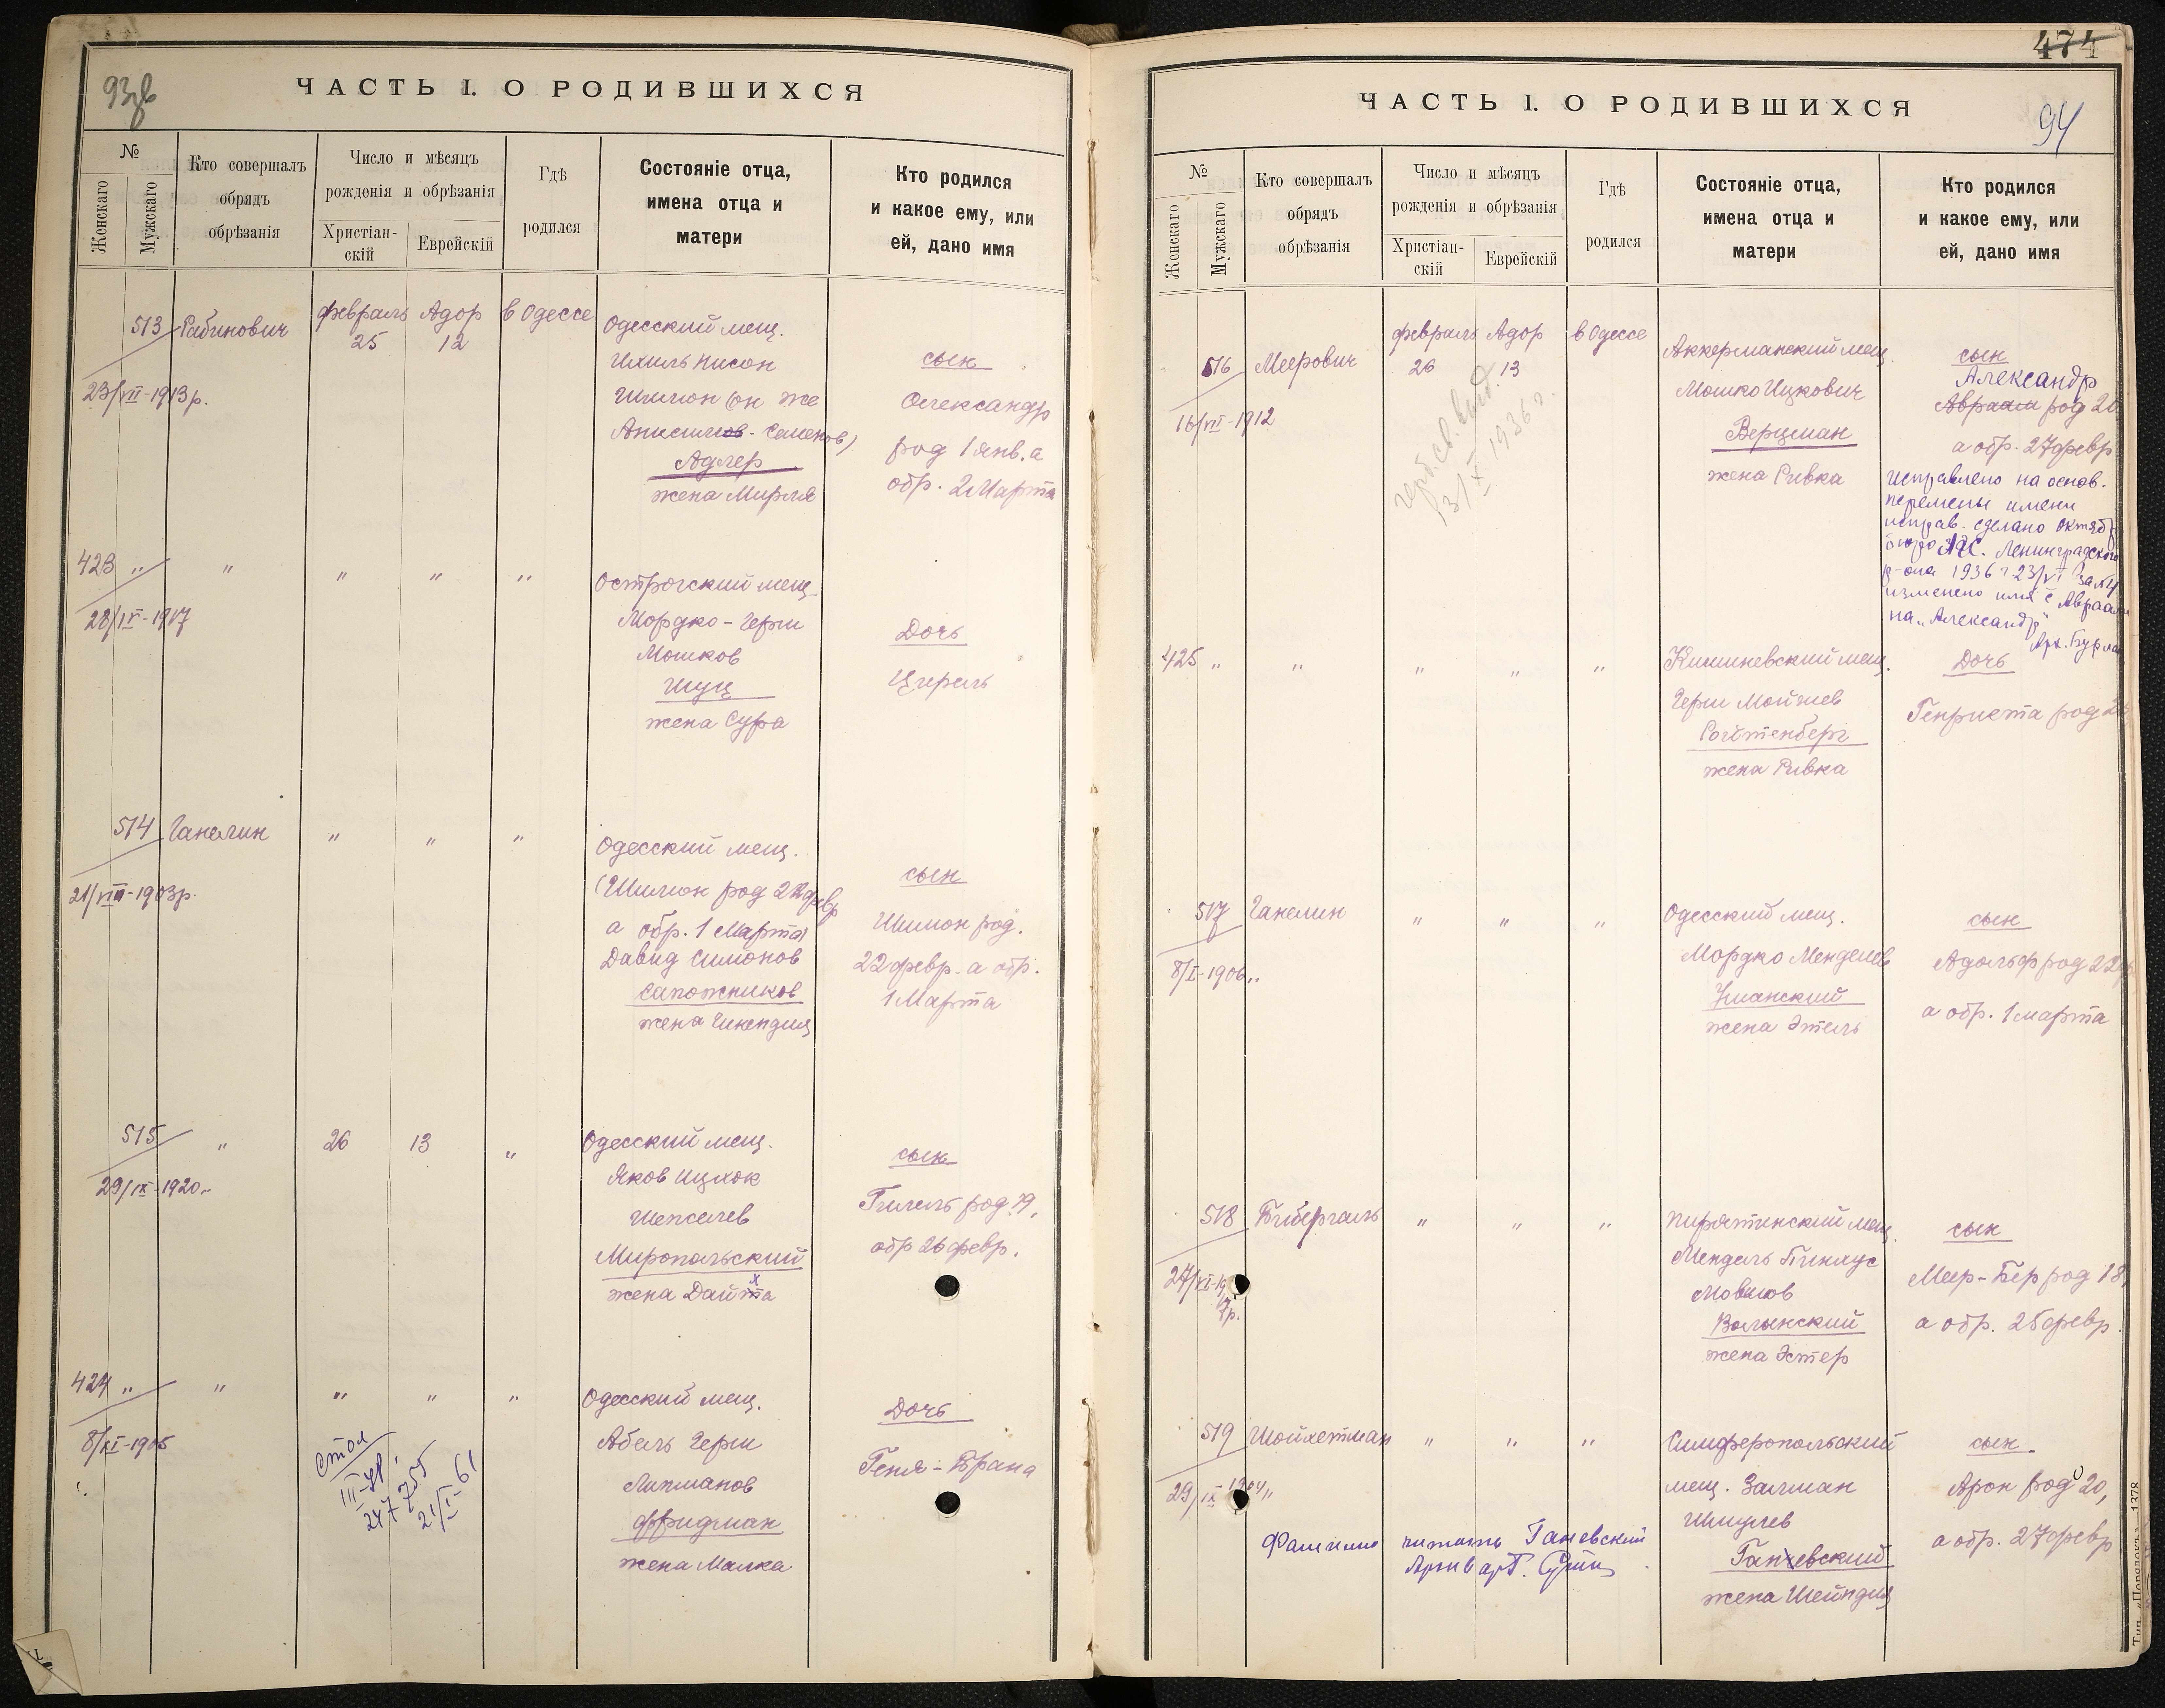 93 об
ЧАСТЬ I. О РОДИВШИХСЯ
№
Женскаго
Мужскаго
Кто совершалъ
обрядъ
обрѣзанія
Число и мѣсяцъ
рожденія и обрѣзанія
Христіан-
скій
Еврейскій
Гдѣ
родился
Состояніе отца,
имена отца и
матери
Кто родился
и какое ему, или
ей, дано имя
513 Рабинович февраль Адор в Одессе Одесский мещ.
25 12
Ихиль Нисон сын
23/VII-1913 р.
Шимон (он же Олександр
Анисимов-Семенов) род 1 янв. а
Адлер обр. 2 Марта
жена Мирля
423 " " " " " Острогский мещ.
28/IV-1917 Мордко-Герш Дочь
Мошков
Шуц Цирель
жена Сура
514 Ганелин " " " Одесский мещ.
21/VIII-1903 р. (Шимон род 22 февр сын
а обр. 1 Марта) Шимон род.
Давид Симонов 22 февр. а обр.
Сапожников 1 Марта
жена Гинендля
515 " 26 13 " Одесский мещ. сын
29/IX-1920 " Яков Ицхок
Шепселев Гилель род 19,
Миропольский обр 26 февр.
х
жена Дайта
424 " " " " " Одесский мещ. Дочь
8/XI-1905 Абель Герш
Липманов Геня-Брана
Фридман
жена Малка
стол
III-УР.
247755
21/I-61
474
94
ЧАСТЬ I. О РОДИВШИХСЯ
№
Женскаго
Мужскаго
Кто совершалъ
обрядъ
обрѣзанія
Число и мѣсяцъ
рожденія и обрѣзанія
Христіан-
скій
Еврейскій
Гдѣ
родился
Состояніе отца,
имена отца и
матери
Кто родился
и какое ему, или
ей, дано имя
516 Меерович февраль Адор в Одессе Аккерманский мещ. сын
26 13 Александр
16/VII-1912 Мошко Ицкович Авраам род 20
Верцман а обр. 27 февр
жена Ривка
св. выд.
13/X 1936 г.
Исправлено на основ.
перемены имени
исправ. сделано Октябр
бюро ЗАГС. Ленинградского
р-она 1936 г 23/VI за №4
изменено имя с Авраам
на "Александр"
Арх. Бурла
425 " " " " " Кишиневский мещ. Дочь
Герш Мойшев Генриета род 26
Ройтенберг
жена Ривка
517 Ганелин " " " Одесский мещ. сын
8/I-1906 " Мордко Менделев Адольф род 22
Уманский а обр. 1 марта
жена Этель
518 Бибергаль " " " Пирятинский мещ. сын
Мендель Пинхус Меер-Бер род 18,
27/VI-19
7 р. Мовшов а обр. 25 февр.
Волынский
жена Эстер
519 Шойхетман " " " Симферопольский сын
29/IX 1904 " мещ. Залман Арон род 20,
Шмулев а обр. 27 февр
Ганчевский
жена Шейндля
Фамилию читать Ганевский
Тип. „Порядокъ“—1378